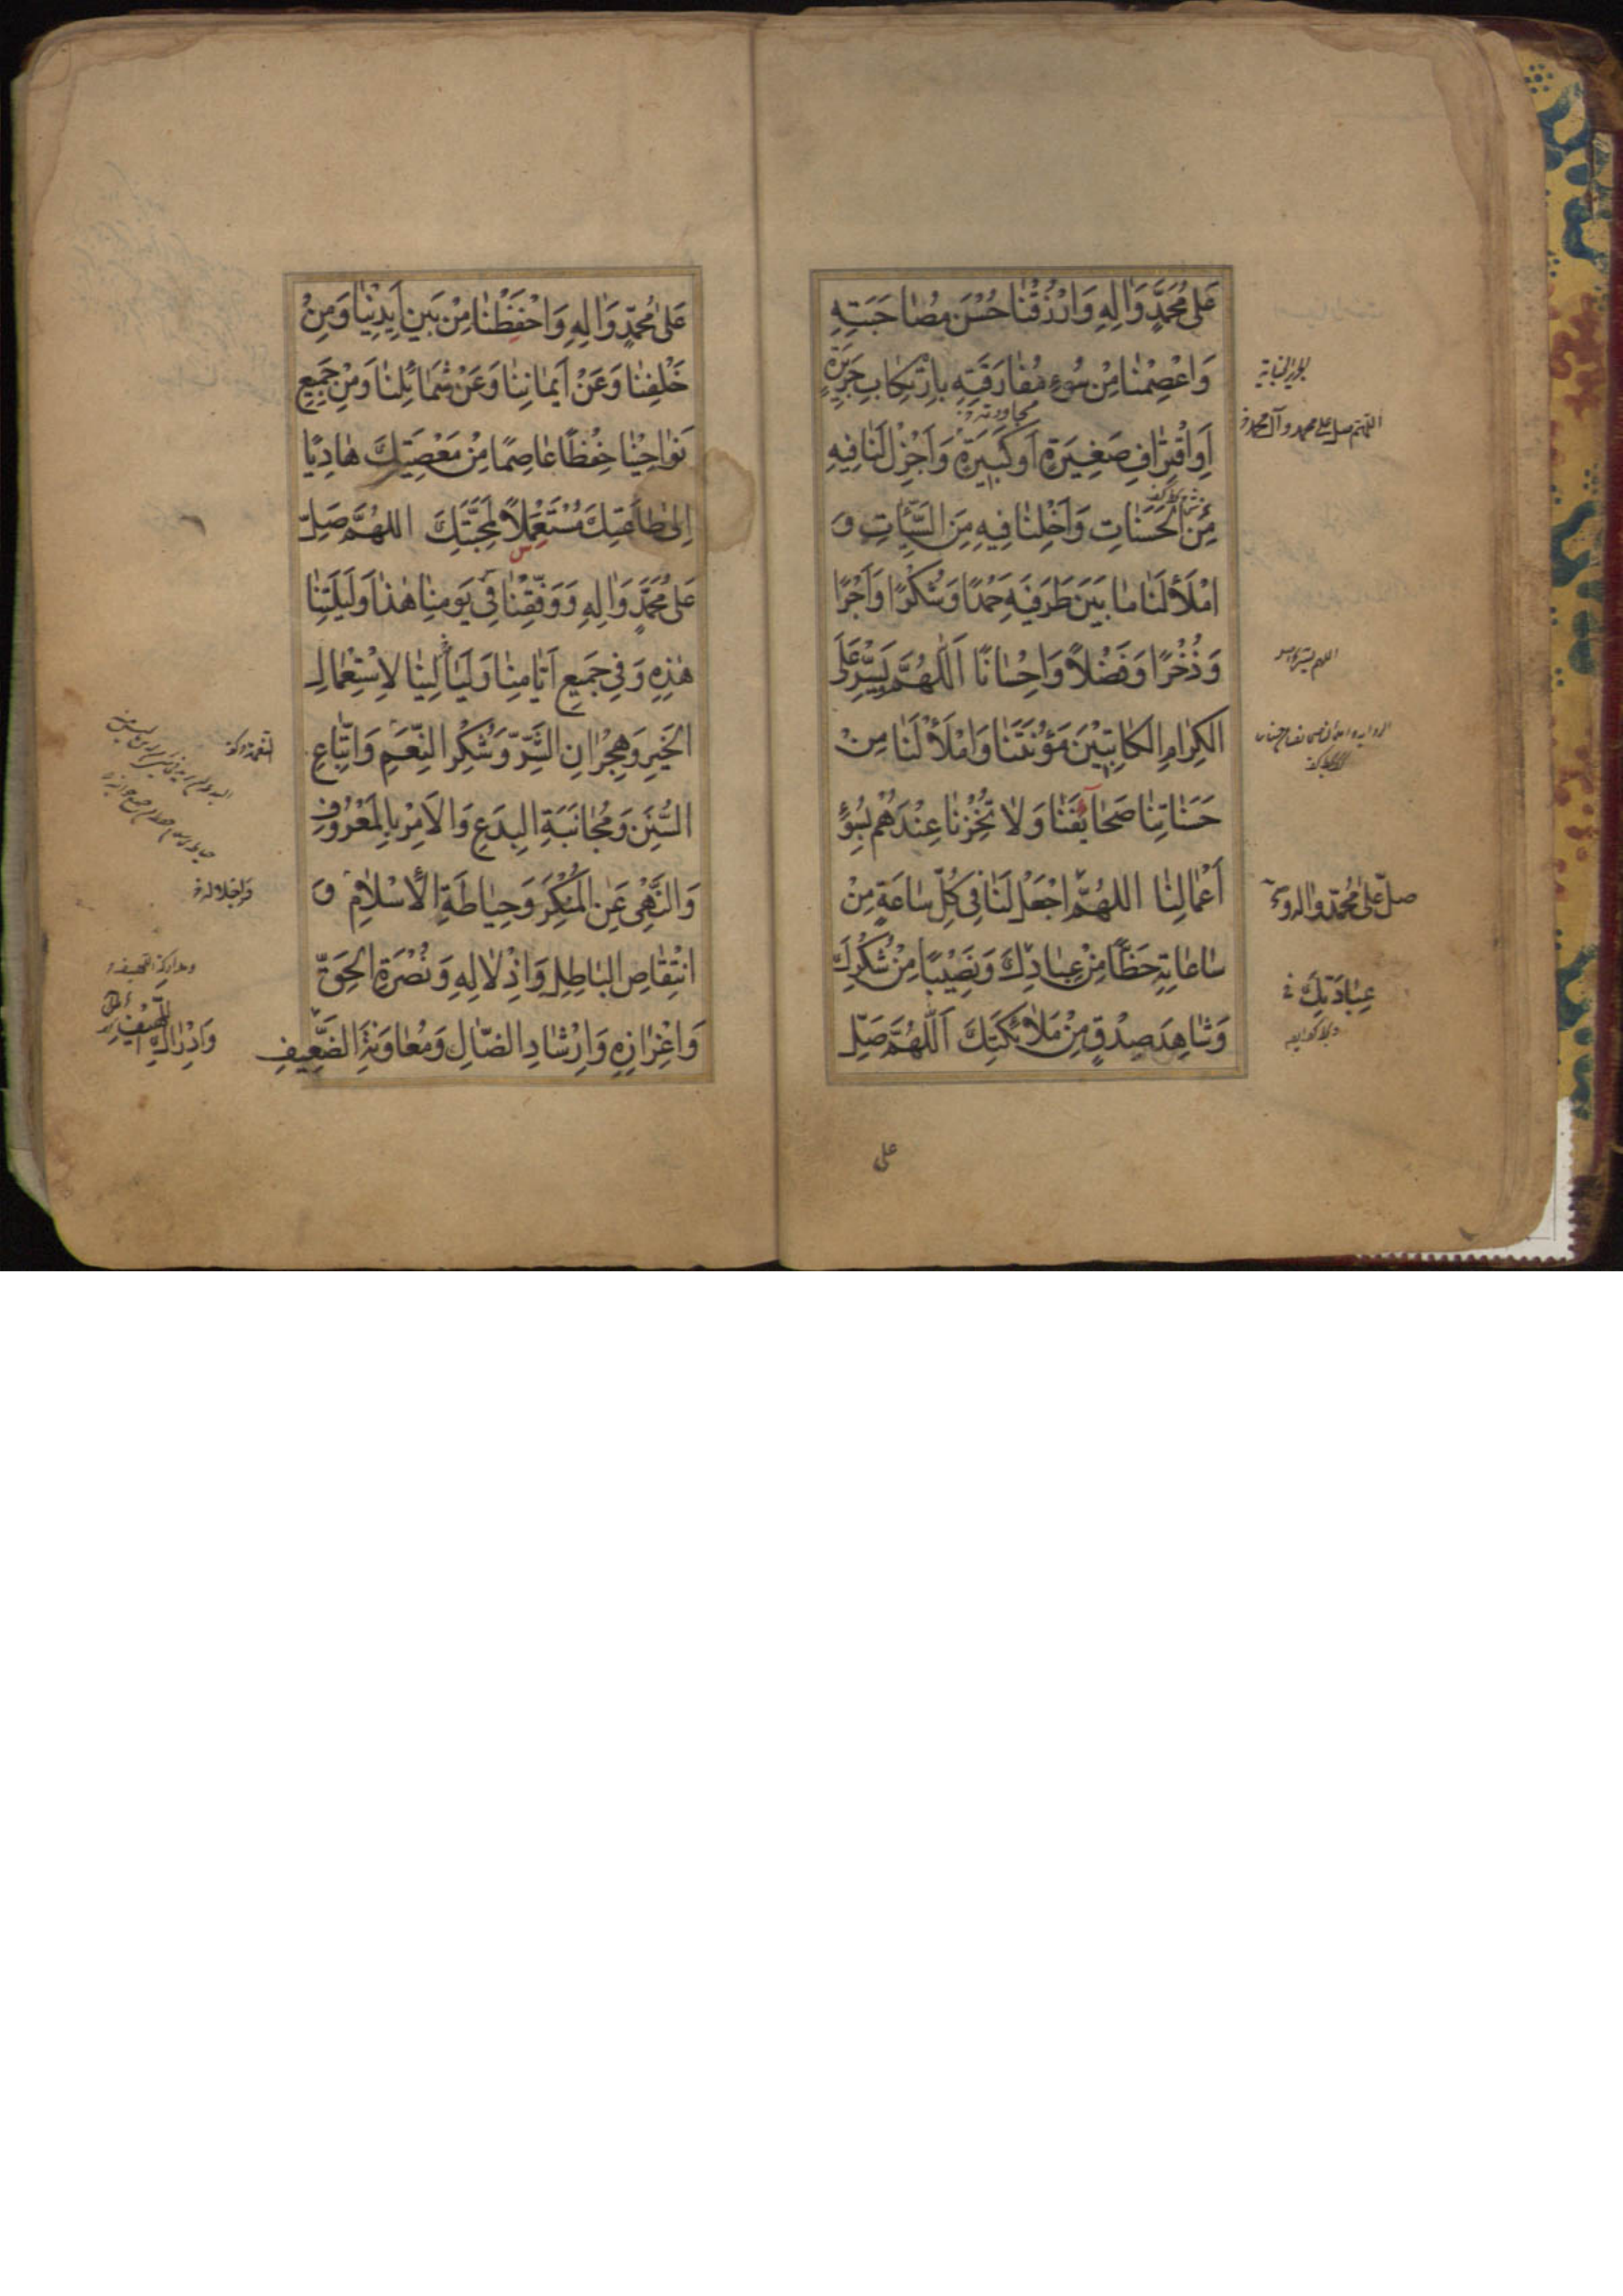 عَلىٰ مُحَمَّدٍ وَاٰلِهِ وَارْزُقْنٰا حُسْنَ مُصٰاحَبَتِهِ
وَاعْصِمْنٰا مِنْ سُوءِ مُفٰارَقَتِهِ بِارْتِكٰابِ جَرِيرَةٍ
اَوِ اقْتِرٰافِ صَغِيرَةٍ اَوْ كَبِيرَةٍ وَاَجْزِلْ لَنٰا فِيهِ
مِنَ الْحَسَنٰاتِ وَاَخْلِنٰا فِيهِ مِنَ السَّيِّئٰاتِ وَ
امْلَأْ لَنٰا مٰا بَيْنَ طَرَفَيْهِ حَمْدًا وَشُكْرًا وَاَجْرًا
وَذُخْرًا وَفَضْلاً وَاِحْسٰانًا اَللّٰهُمَّ يَسِّرْ عَلَى
الْكِرٰامِ الْكٰاتِبِيْنَ مَؤُنَتَنٰا وَامْلَأْ لَنٰا مِنْ
حَسَنٰاتِنٰا صَحٰائِفَنٰا وَلاٰ تُخْزِنٰا عِنْدَهُمْ بِسُوْءِ
اَعْمٰالِنٰا اللهُمَّ اجْعَلْ لَنٰا فِى كُلِّ سٰاعَةٍ مِنْ
سٰاعٰاتِهِ حَظًّا مِنْ عِبٰادِكَ وَنَصِيْبًا مِنْ شُكْرِكَ
وَشٰاهِدَ صِدْقٍ مِنْ مَلاٰئِكَتِكَ اَللّٰهُمَّ صَلِّ
على
اللهم صل على محمد وآل محمد
صلّ على محمّد واله
عِبٰادَتِكَ
عَلىٰ مُحَمَّدٍ وَاٰلِهِ وَاحْفَظْنٰا مِنْ بَيْنِ اَيْدِيْنٰا وَمِنْ
خَلْفِنٰا وَعَنْ اَيْمٰانِنٰا وَعَنْ شَمٰائِلِنٰا وَمِنْ جَمِيعِ
نَوٰاحِيْنٰا حِفْظًا عٰاصِمًا مِنْ مَعْصِيَتِكَ هٰادِيًا
اِلىٰ طٰاعَتِكَ مُسْتَعْمِلاً لِمَحَبَّتِكَ اللهُمَّ صَلِّ
عَلىٰ مُحَمَّدٍ وَاٰلِهِ وَوَفِّقْنٰا فِى يَوْمِنٰا هٰذٰا وَلَيْلَتِنٰا
هٰذِهِ وَفِى جَمِيعِ اَيّٰامِنٰا وَلَيٰالِيْنٰا لِاسْتِعْمٰالِ
الْخَيْرِ وَهِجْرٰانِ الشَّرِّ وَشُكْرِ النِّعَمِ وَاتِّبٰاعِ
السُّنَنِ وَمُجٰانَبَةِ الْبِدَعِ وَالْاَمْرِ بِالْمَعْرُوفِ
وَالنَّهْىِ عَنِ الْمُنْكَرِ وَحِيٰاطَةِ الْاِسْلاٰمِ وَ
انْتِقٰاصِ الْبٰاطِلِ وَاِذْلاٰلِهِ وَنُصْرَةِ الْحَقِّ
وَاِعْزٰازِهِ وَاِرْشٰادِ الضّٰالِ وَمُعٰاوَنَةِ الضَّعِيفِ
وَاِدْرٰاكِ اللَّهِيفِ